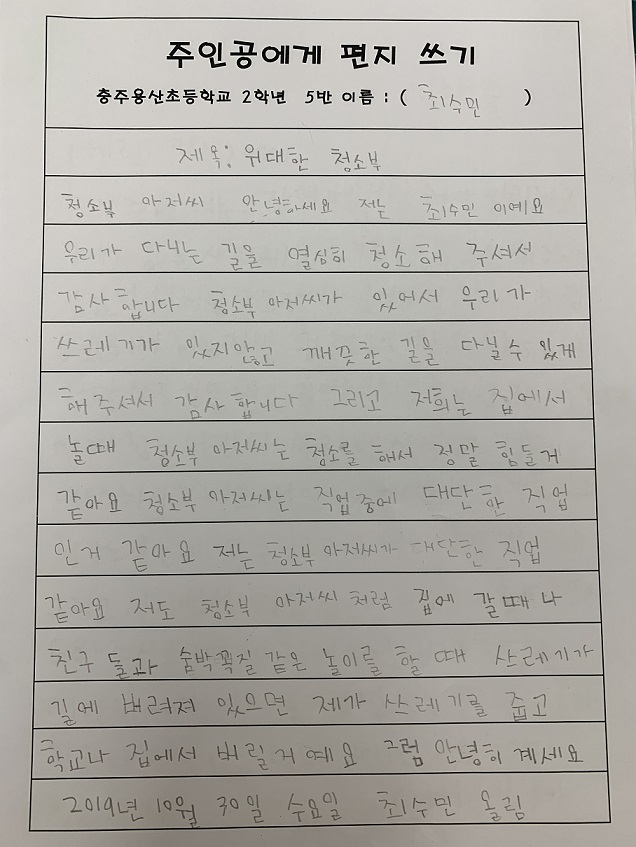 주인공에게 편지 쓰기
충주용산초등학교 2학년 5반 이름 : ( 최수민 )
제목: 위대한 청소부
청소부 아저씨 안녕하세요 저는 최수민 이예요
우리가 다니는 길을 열심히 청소해 주셔서
감사합니다 청소부 아저씨가 있어서 우리가
쓰레기가 있지않고 깨끗한 길을 다닐수 있게
해주셔서 감사합니다 그리고 저희는 집에서
놀때 청소부 아저씨는 청소를 해서 정말 힘들거
같아요 청소부 아저씨는 직업중에 대단한 직업
인거 같아요 저는 청소부 아저씨가 대단한 직업
같아요 저도 청소부 아저씨 처럼 집에 갈때나
친구 들과 숨박꼭질 같은 놀이를 할 때 쓰레기가
길에 버려져 있으면 제가 쓰레기를 줍고
학교나 집에서 버릴거예요 그럼 안녕히 계세요
2019년 10월 30일 수요일 최수민 올림